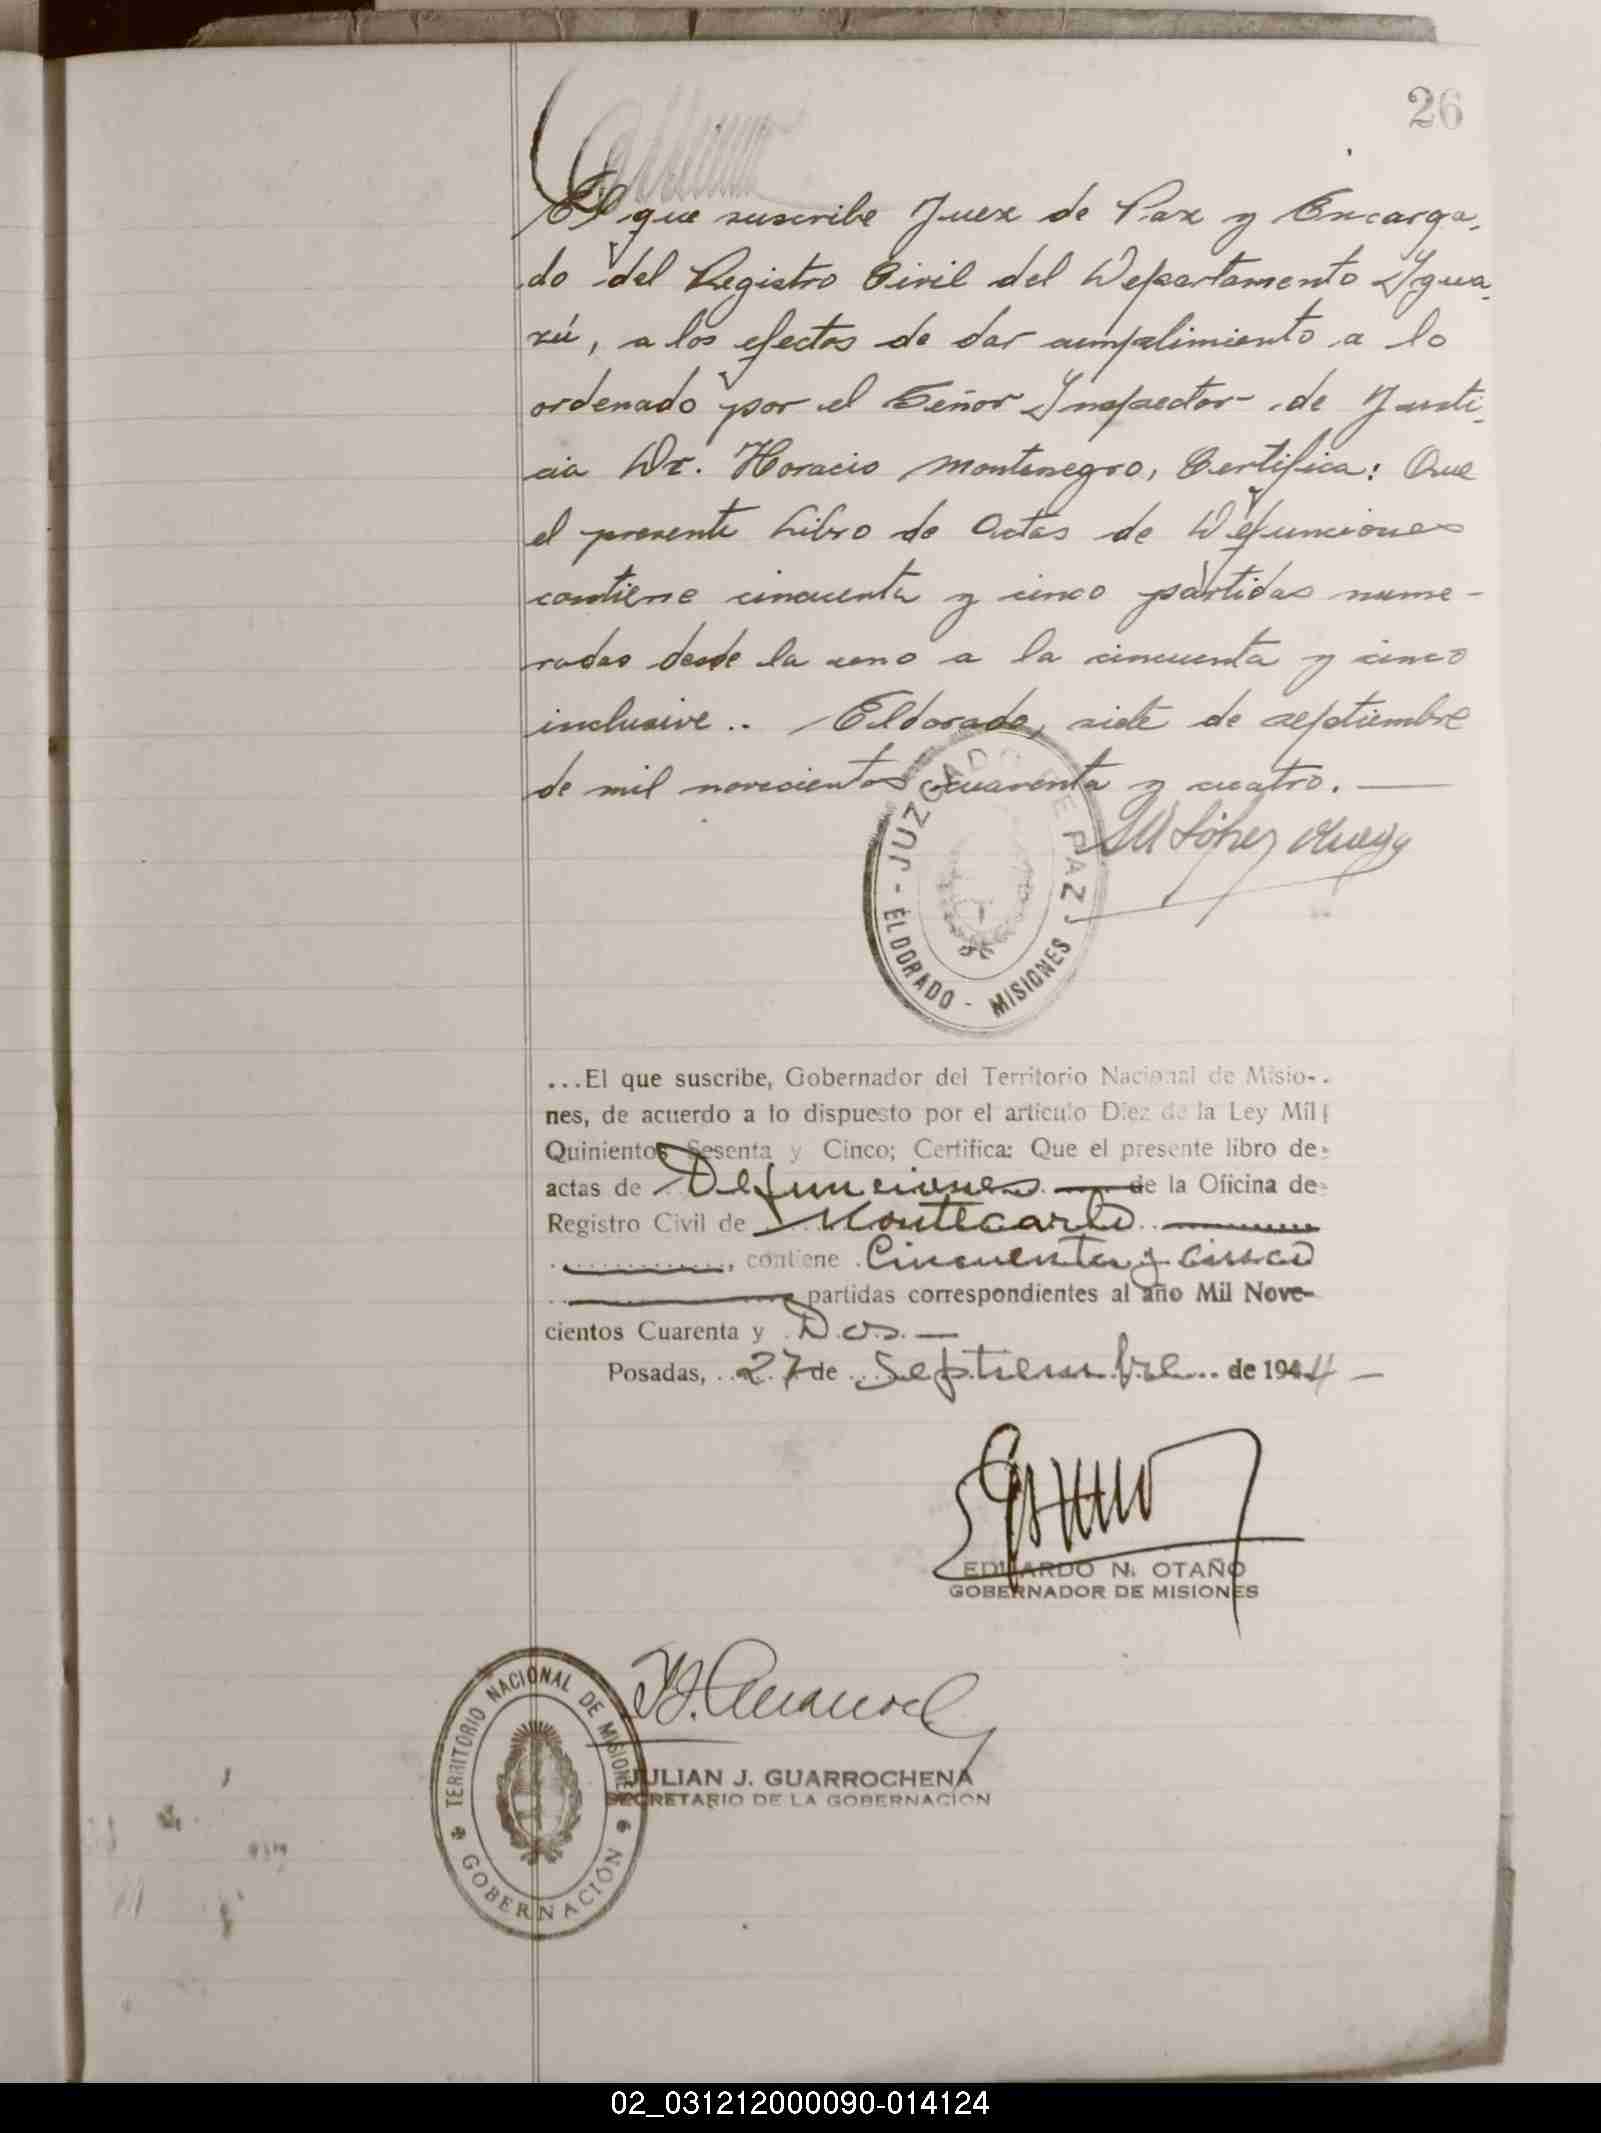 26
El que suscribe Juez de Paz y Encarga-
do del Registro Civil del Departamento Igua-
zú, a los efectos de dar cumplimiento a lo
ordenado por el Señor Inspector de Justi-
cia Dr. Horacio Montenegro, Certifica: Que
el presente Libro de Actas de Defunciones
contiene cincuenta y cinco partidas nume-
radas desde la uno a la cincuenta y cinco
inclusive.. Eldorado, siete de septiembre
de mil novecientos cuarenta y cuatro.
JUZGADO DE PAZ
- ELDORADO - MISIONES
...El que suscribe, Gobernador del Territorio Nacional de Misio-
nes, de acuerdo a lo dispuesto por el artículo Diez de la Ley Mil
Quinientos Sesenta y Cinco; Certifica: Que el presente libro de
actas de Defunciones de la Oficina de
Registro Civil de Montecarlo
, contiene Cincuenta y cinco
partidas correspondientes al año Mil Nove-
cientos Cuarenta y Dos.—
Posadas, 27 de Septiembre de 1944 —
EDUARDO N. OTAÑO
GOBERNADOR DE MISIONES
TERRITORIO NACIONAL DE MISIONES
GOBERNACIÓN
JULIAN J. GUARROCHENA
SECRETARIO DE LA GOBERNACION
02_031212000090-014124